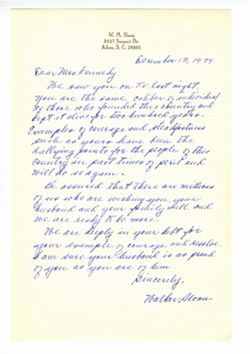 W. M. Sloan
Aiken, S. C. 29801
December 13, 1979
Dear Mrs. Kennedy
We saw you on TV last night.
You are the same caliber of individual
as those who founded this country and
kept it alive for two hundred years.
Examples of courage and steadfastness
such as yours have been the
rallying points for the people of this
country in past times of peril and will
do so again.
Be assured that there are millions
of us who are wishing you, your
husband and your family well and
we are ready to do more.
We are deeply in your debt for
your example of courage and resolve.
I am sure your husband is as proud
of you as you are of him.
Sincerely,
Walter Sloan